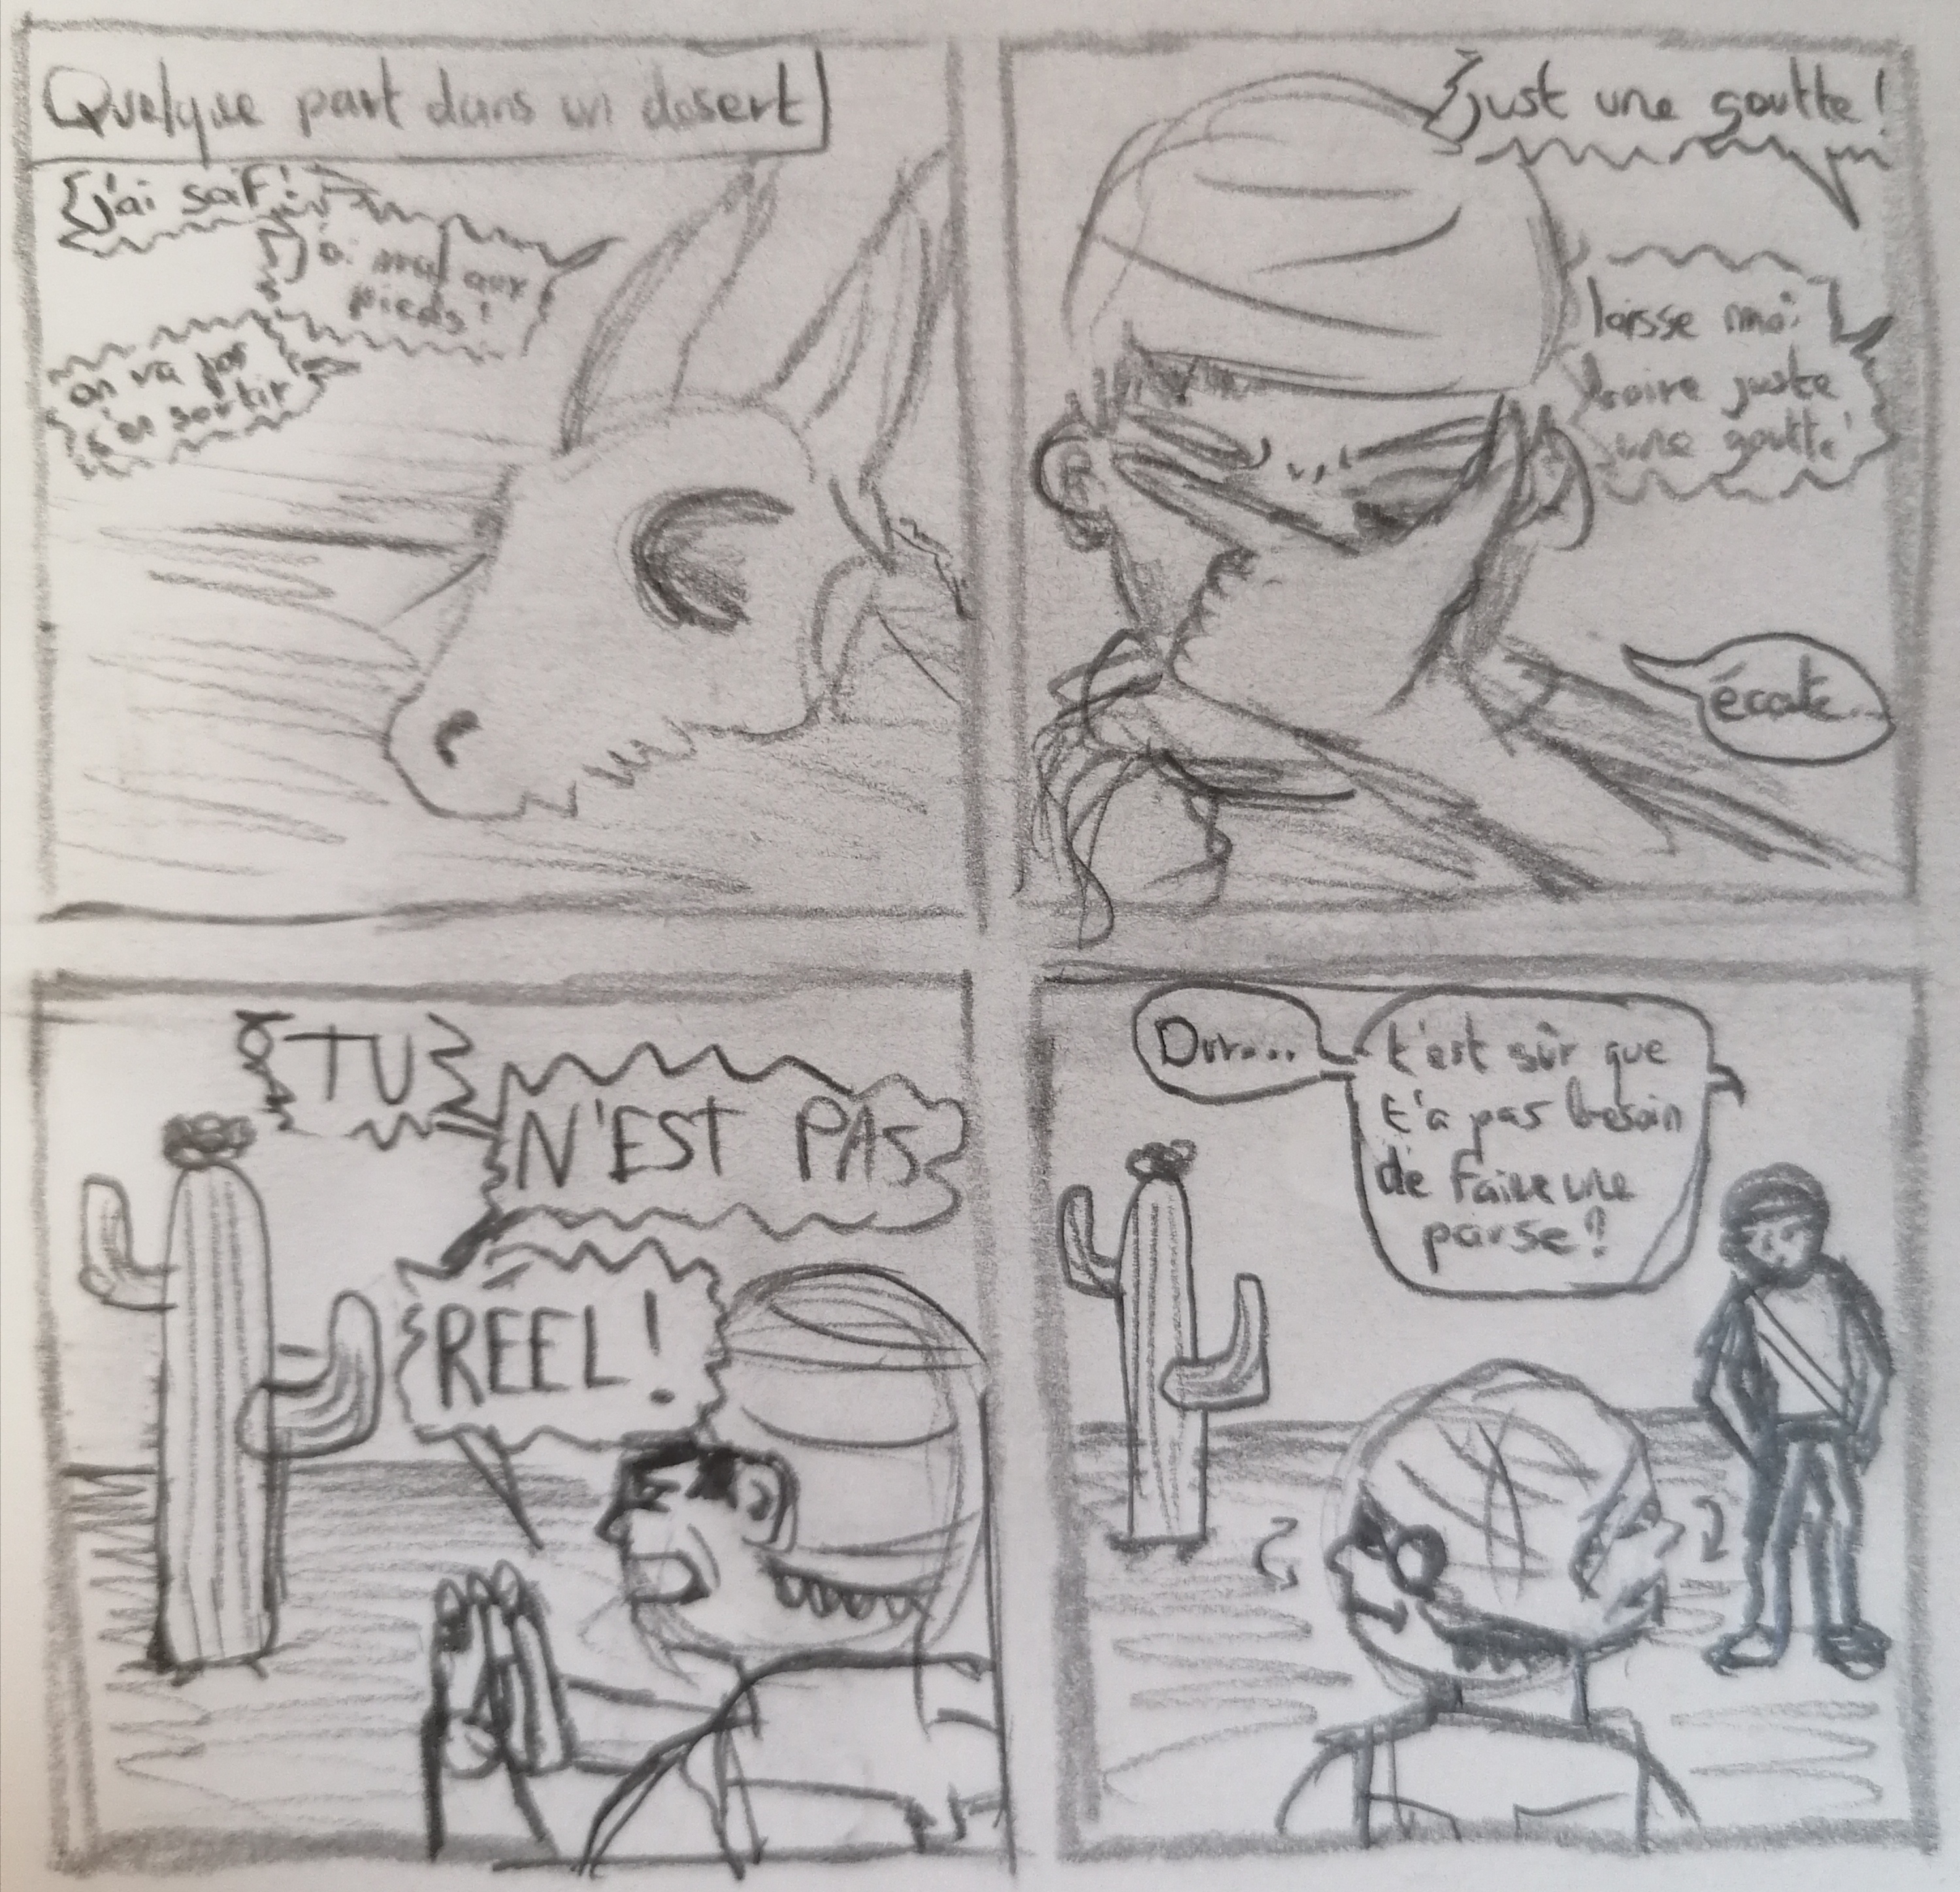 Quelque part dans un desert
j'ai soif!
J'ai mal aux
pieds!
on va pas
s'en sortir
just une goutte!
laisse moi
boire juste
une goutte
écoute...
TU
N'EST PAS
RÉEL!
Dur...
t'est sûr que
t'a pas besoin
de faire une
parse?